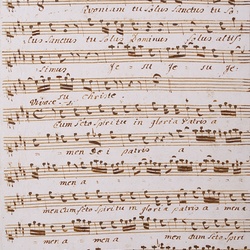 Quoniam tu solus sanctus tu so
lus sanctus tu solus Dominus solus altis
simus Je su Je su
Vivace su christe
Cum scto spiritu in gloria Patris a
men De i patris a
men a
men cum scto spiritu in gloria patris a men a
men a men cum scto spiri